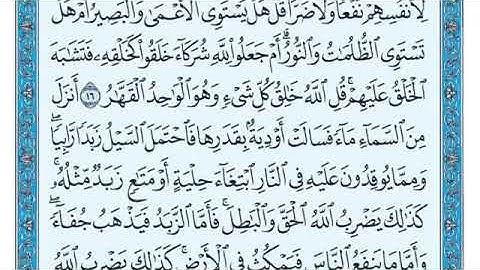 لِأَنفُسِهِمْ نَفْعًا وَلَا ضَرًّا ۚ قُلْ هَلْ يَسْتَوِى ٱلْأَعْمَىٰ وَٱلْبَصِيرُ أَمْ هَلْ
تَسْتَوِى ٱلظُّلُمَـٰتُ وَٱلنُّورُ ۗ أَمْ جَعَلُوا۟ لِلَّهِ شُرَكَآءَ خَلَقُوا۟ كَخَلْقِهِۦ فَتَشَـٰبَهَ
ٱلْخَلْقُ عَلَيْهِمْ ۚ قُلِ ٱللَّهُ خَـٰلِقُ كُلِّ شَىْءٍ وَهُوَ ٱلْوَٰحِدُ ٱلْقَهَّـٰرُ ١٦ أَنزَلَ
مِنَ ٱلسَّمَآءِ مَآءً فَسَالَتْ أَوْدِيَةٌۢ بِقَدَرِهَا فَٱحْتَمَلَ ٱلسَّيْلُ زَبَدًا رَّابِيًا ۚ
وَمِمَّا يُوقِدُونَ عَلَيْهِ فِى ٱلنَّارِ ٱبْتِغَآءَ حِلْيَةٍ أَوْ مَتَـٰعٍ زَبَدٌ مِّثْلُهُۥ ۚ
كَذَٰلِكَ يَضْرِبُ ٱللَّهُ ٱلْحَقَّ وَٱلْبَـٰطِلَ ۚ فَأَمَّا ٱلزَّبَدُ فَيَذْهَبُ جُفَآءً ۖ
وَأَمَّا مَا يَنفَعُ ٱلنَّاسَ فَيَمْكُثُ فِى ٱلْأَرْضِ ۚ كَذَٰلِكَ يَضْرِبُ ٱللَّهُ